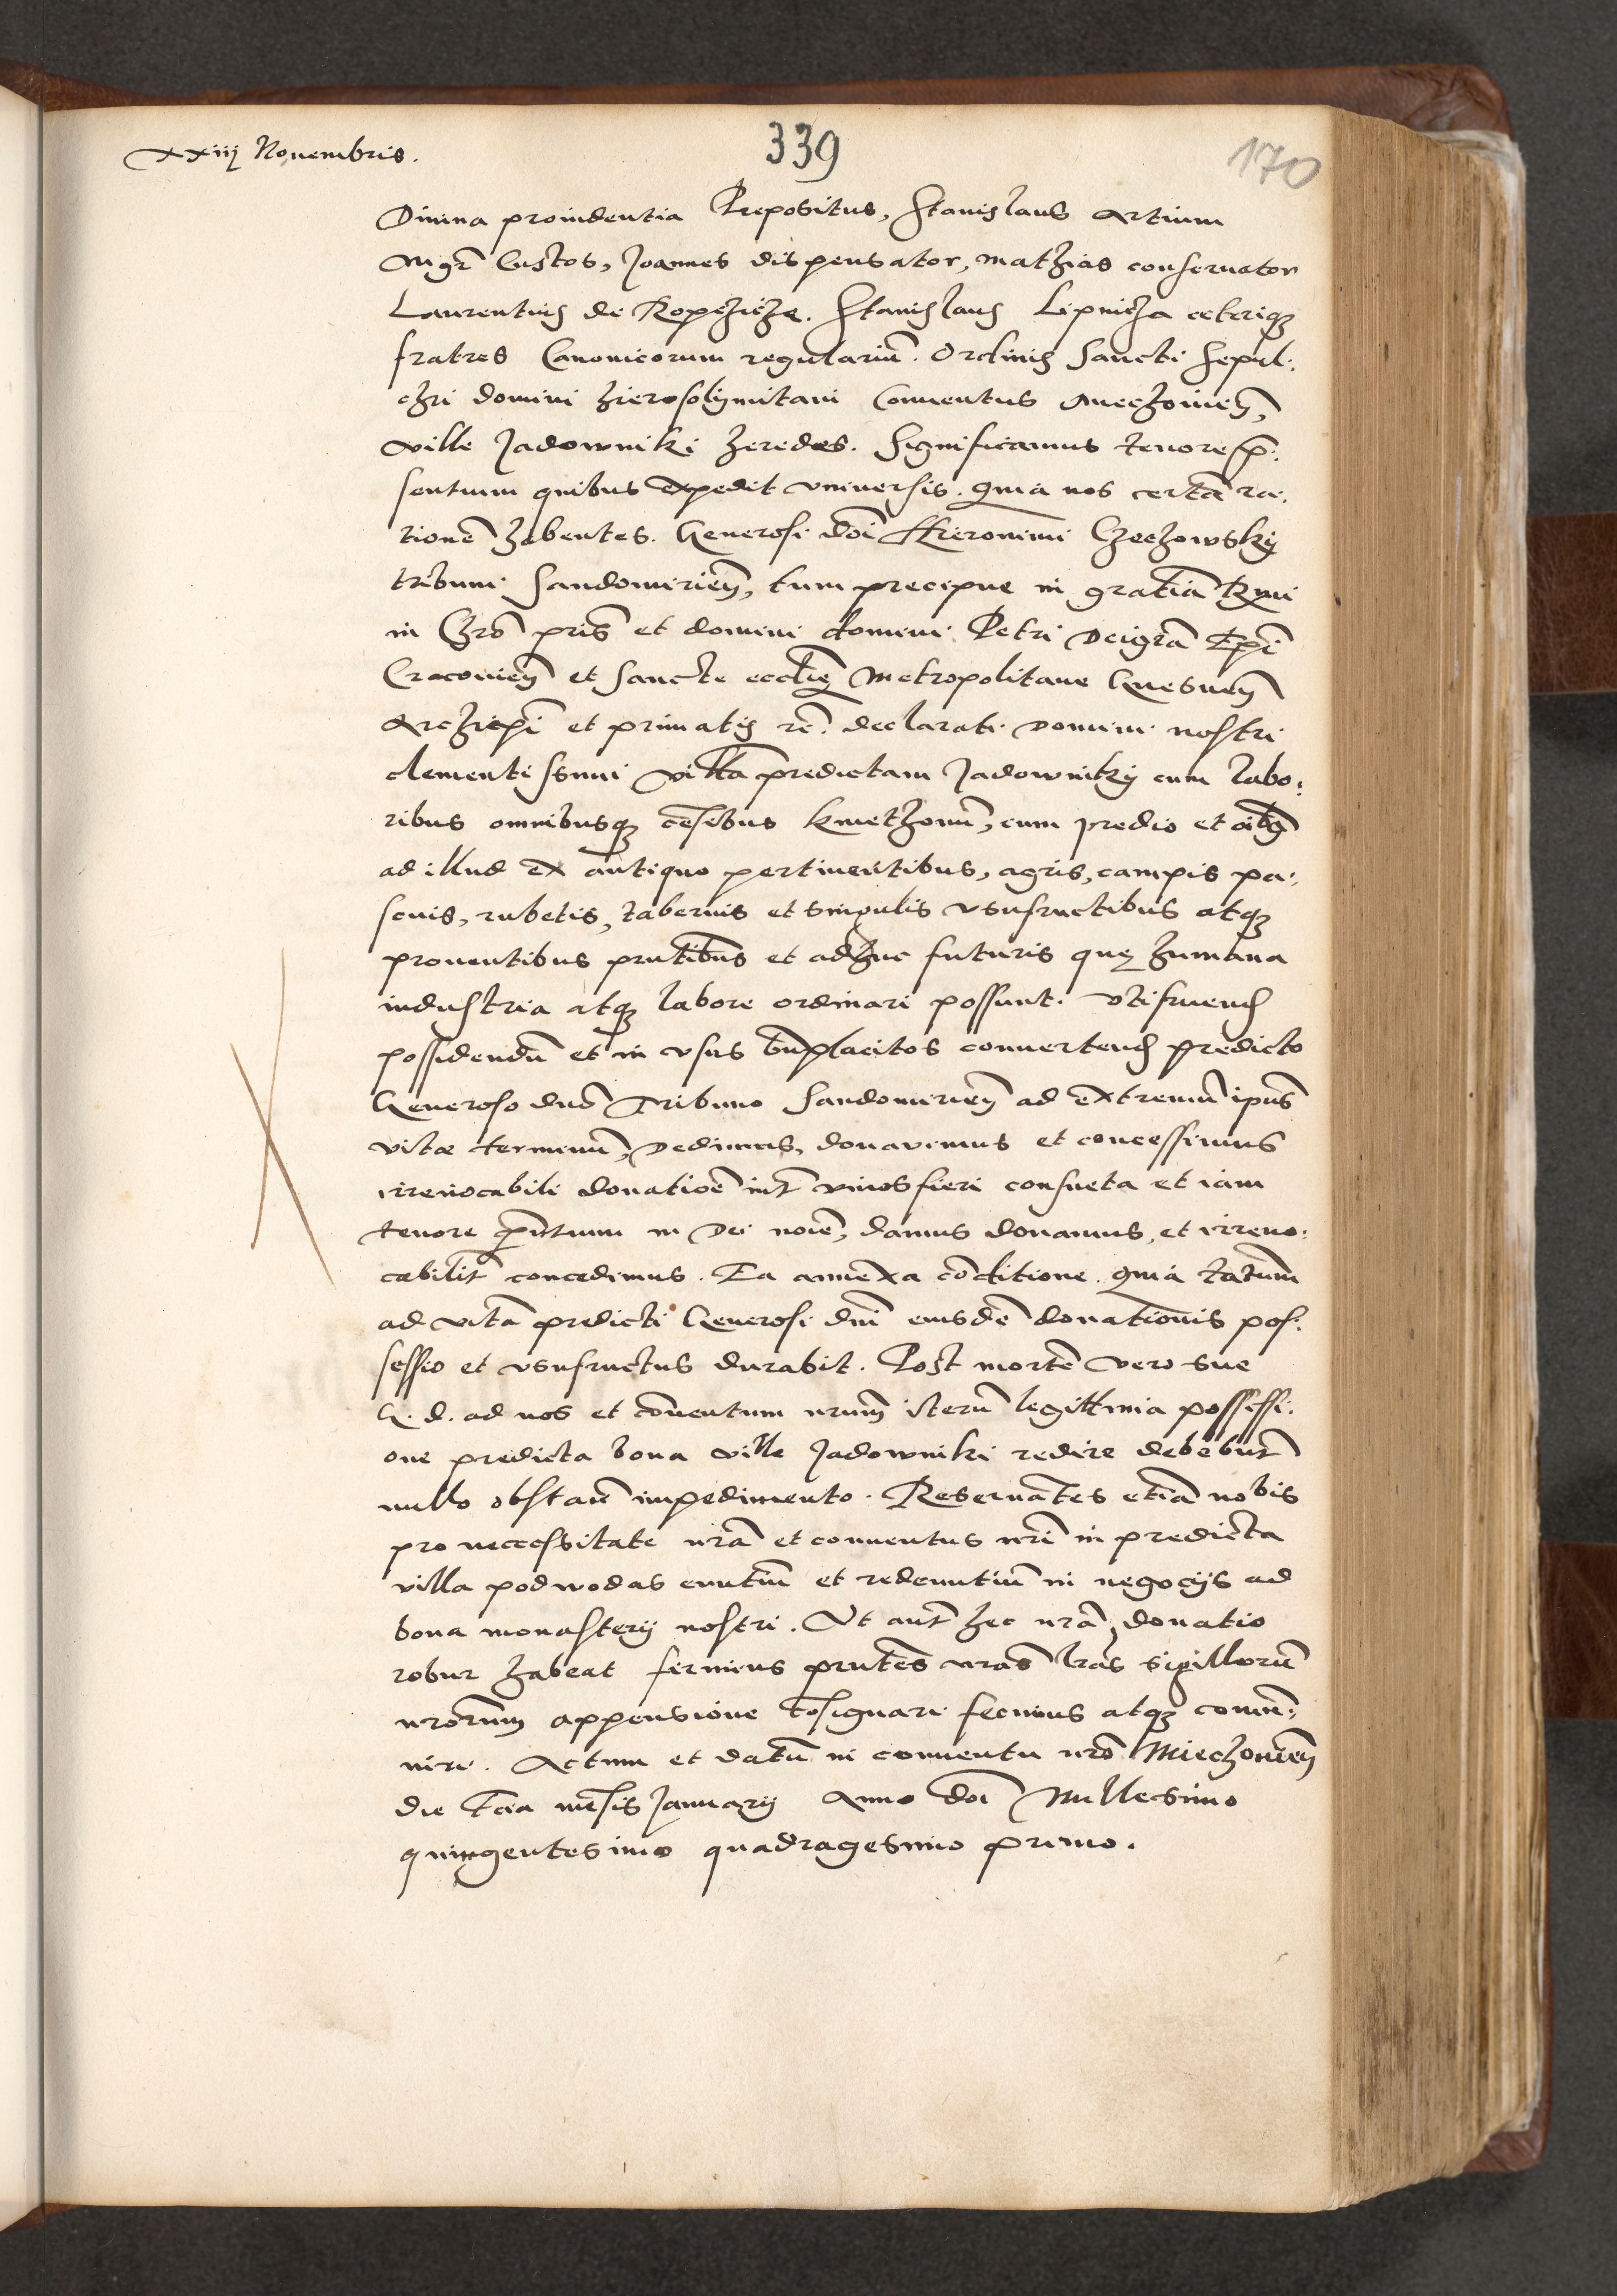 xxiij Nouembris.
339
170
Diuina prouidentia Prepositus, Stanislaus Artium
Mgr̄ Custos, Joannes dispensator, Mathias conseruator
Laurentius de Kopchicze. Stanislaus Lipnicza ceteriq3
fratres Canonicorum regulariū. Ordinis Sancti Sepul:
chri domini hierosolymitani Conuentus Miechouieñ,
ville Jadowniki heredes. Significamus tenore p̄:
sentium quibus expedit vniuersis. Quia nos certā ra:
tionē habentes. Generosi dn̄i Hieronimi Czechowsky
tribuni Sandomirieñ, tum precipue in gratiā Rmi
in Chrō pris̄ et domini domini Petri Dei grā Ep̄i
Cracouieñ et sancte eccliȩ̄ Metropolitane Gnesneñ
Archiepī et primatis rc̄. declarati Domini nostri
clementissimi villā predictam Jadowniky cum labo:
ribus omnibusq3 cēsibus kmethonū, cum predio et oībꝯ
ad illud ex antiquo pertinentibus, agris, campis pa:
scuis, rubetis, tabernis et singulis vsufructibus atq3
prouentibus pn̄tibus et adhuc futuris quȩ humana
industria atq3 labore ordinari possunt. Vtifruend
possidendū et in vsus bn̄placitos conuertend predicto
Generoso dnō Tribuno Sandomirieñ ad extremū ipius̄
vitæ terminū, Dedimus, donauimus et concessimus
irreuocabili donatiōe int̄ viuos fieri consueta et iam
tenore p̄ntium in Dei noīe, damus donamus, et irreuo:
cabilit̄ concedimus. Ea annexa cōditione. Quia tātum
ad vitā predicti Generosi dnī eiusdē donationis pos:
sessio et vsufructus durabit. Post mortē vero sue
G. d. ad nos et cōuentum nrūm iterū legittima possessi:
one predicta bona ville Jadowniki redire debebūt
nullo obstāte impedimento. Reseruātes etiā nobis
pro neccessitate nrā et conuentus nrī in predicta
villa podwodas euntiū et redeuntiū in negocijs ad
bona monasterij nostri. Vt aut̄ hec nrā donatio
robur habeat firmius pn̄tes nrās lrās sigillorū
nrōrum appensione cōsignari fecimus atq3 commu:
niri. Actum et datū in conuentu nrō Miechouieñ
die tcīa mēsis Januarij Anno doī Millesimo
quingentesimo quadragesimo primo.